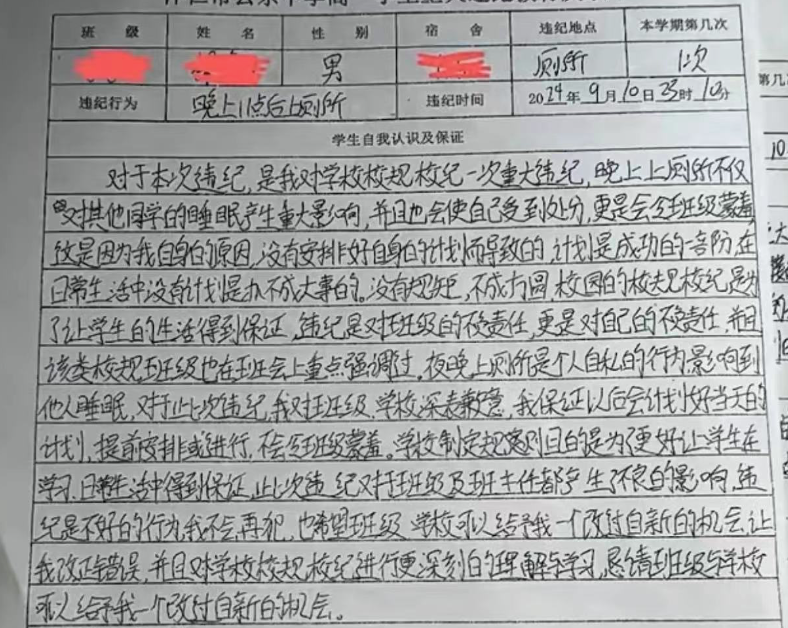 班 级 姓 名 性 别 宿 舍 违纪地点 本学期第几次
男 厕所 1次
违纪行为 晚上11点后上厕所 违纪时间 2024年9月10日23时10分
第几
学生自我认识及保证
10
对于本次违纪,是我对学校校规校纪一次重大违纪,晚上上厕所不仅
对其他同学的睡眠产生重大影响,并且也会使自己受到处分,更是会令班级蒙羞
这是因为我自身的原因,没有安排好自身的计划而导致的,计划是成功的一部份,在
日常生活中没有计划是办不成大事的。没有规矩,不成方圆,校园的校规校纪是为
了让学生的生活得到保证,违纪是对班级的不负责任,更是对自己的不负责任,并且
该类校规班级也在班会上重点强调过,夜晚上厕所是个人自私的行为影响到
他人睡眠,对于此次违纪,我对班级、学校深表歉意,我保证以后会计划好当天的
计划,提前安排或进行,不会令班级蒙羞。学校制定规章则目的是为了更好让学生在
学习、日常生活中得到保证,此次违纪对于班级及班主任都产生了不良的影响,违
纪是不好的行为,我不会再犯,也希望班级、学校可以给予我一个改过自新的机会,让
我改正错误,并且对学校校规校纪进行更深刻的理解与学习,恳请班级与学校
可以给予我一个改过自新的机会。